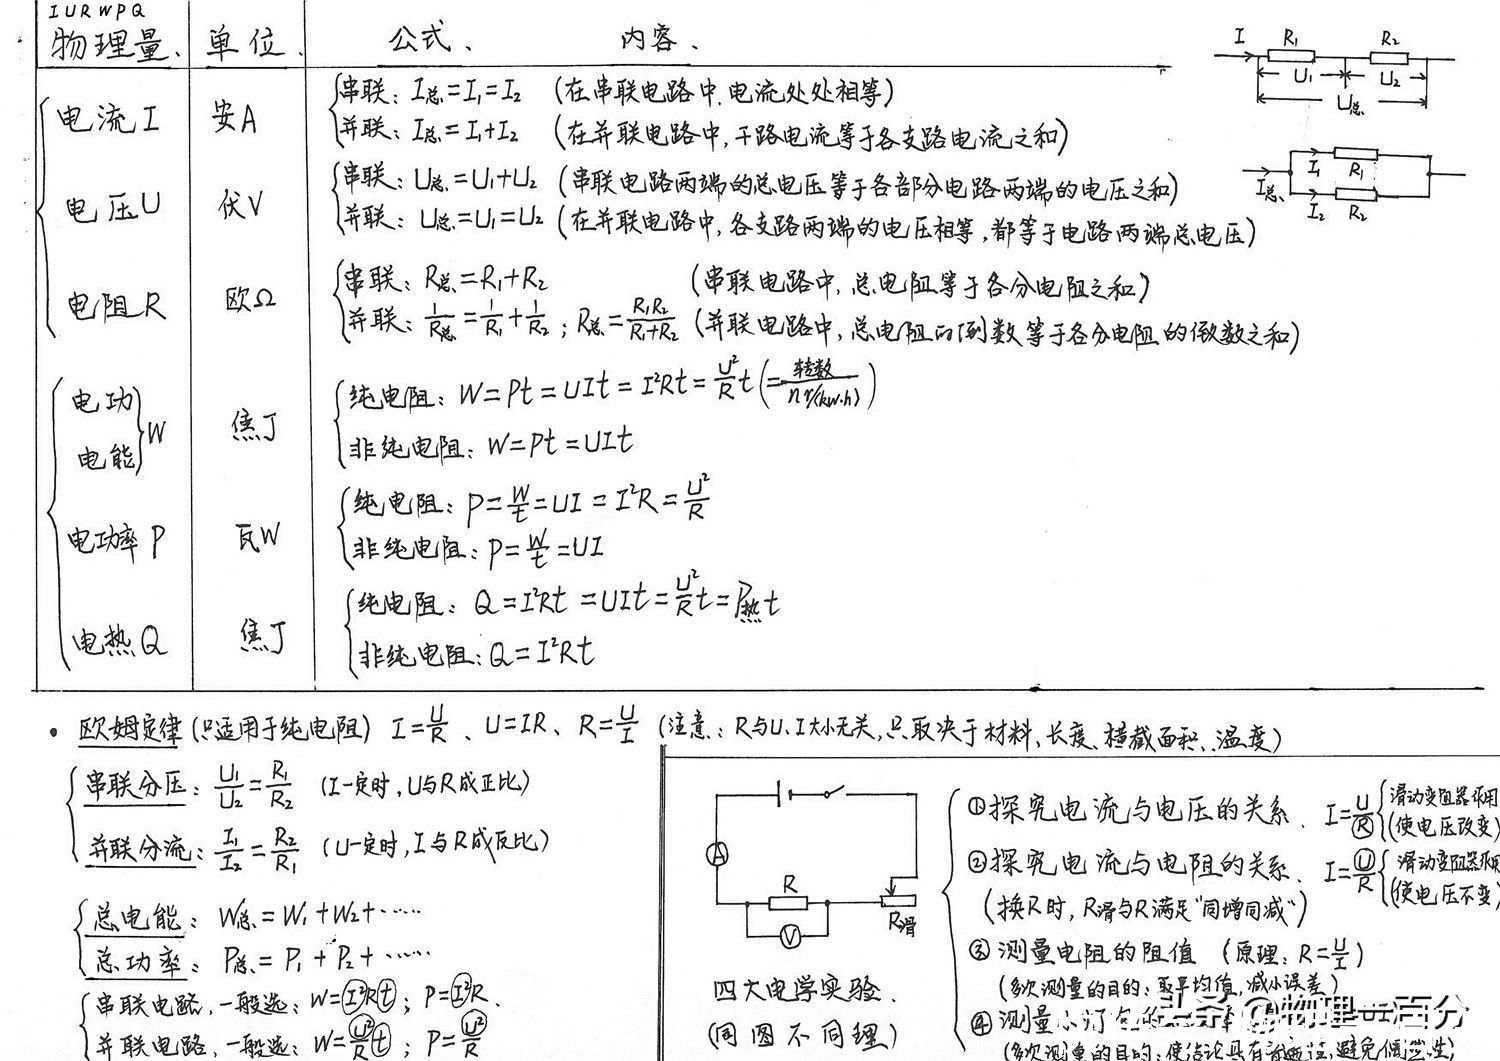 I U R W P Q
物理量、 单位、 公式、 内容、
电流I 安A
串联：I总=I₁=I₂ （在串联电路中，电流处处相等）
并联：I总=I₁+I₂ （在并联电路中，干路电流等于各支路电流之和）
电压U 伏V
串联：U总=U₁+U₂ （串联电路两端的总电压等于各部分电路两端的电压之和）
并联：U总=U₁=U₂ （在并联电路中，各支路两端的电压相等，都等于电路两端总电压）
电阻R 欧Ω
串联：R总=R₁+R₂ （串联电路中，总电阻等于各分电阻之和）
并联：1/R总=1/R₁+1/R₂；R总=R₁R₂/(R₁+R₂) （并联电路中，总电阻的倒数等于各分电阻的倒数之和）
I R₁ R₂
U₁ U₂
U总
I总 I₁ R₁
I₂ R₂
电功
电能 W 焦J
纯电阻：W=Pt=UIt=I²Rt=U²/R t(=转数/n r/(kw·h))
非纯电阻：W=Pt=UIt
电功率P 瓦W
纯电阻：P=W/t=UI=I²R=U²/R
非纯电阻：P=W/t=UI
电热Q 焦J
纯电阻：Q=I²Rt=UIt=U²/R t=P热t
非纯电阻：Q=I²Rt
• 欧姆定律（只适用于纯电阻） I=U/R、U=IR、R=U/I （注意：R与U、I大小无关，只取决于材料、长度、横截面积、温度）
串联分压：U₁/U₂=R₁/R₂ （I一定时，U与R成正比）
并联分流：I₁/I₂=R₂/R₁ （U一定时，I与R成反比）
总电能：W总=W₁+W₂+……
总功率：P总=P₁+P₂+……
串联电路，一般选：W=I²Rt；P=I²R
并联电路，一般选：W=U²/R t；P=U²/R
A
R
V
R滑
四大电学实验、
（同图不同理）
①探究电流与电压的关系、 I=U/R 滑动变阻器作用
（使电压改变）
②探究电流与电阻的关系、 I=U/R 滑动变阻器作用
（使电压不变）
（换R时，R滑与R满足“同增同减”）
③测量电阻的阻值 （原理：R=U/I）
（多次测量的目的：取平均值，减小误差）
④测量小灯
（多次测量的目的：使结论具有 避免偶然性）
头条@物理一百分